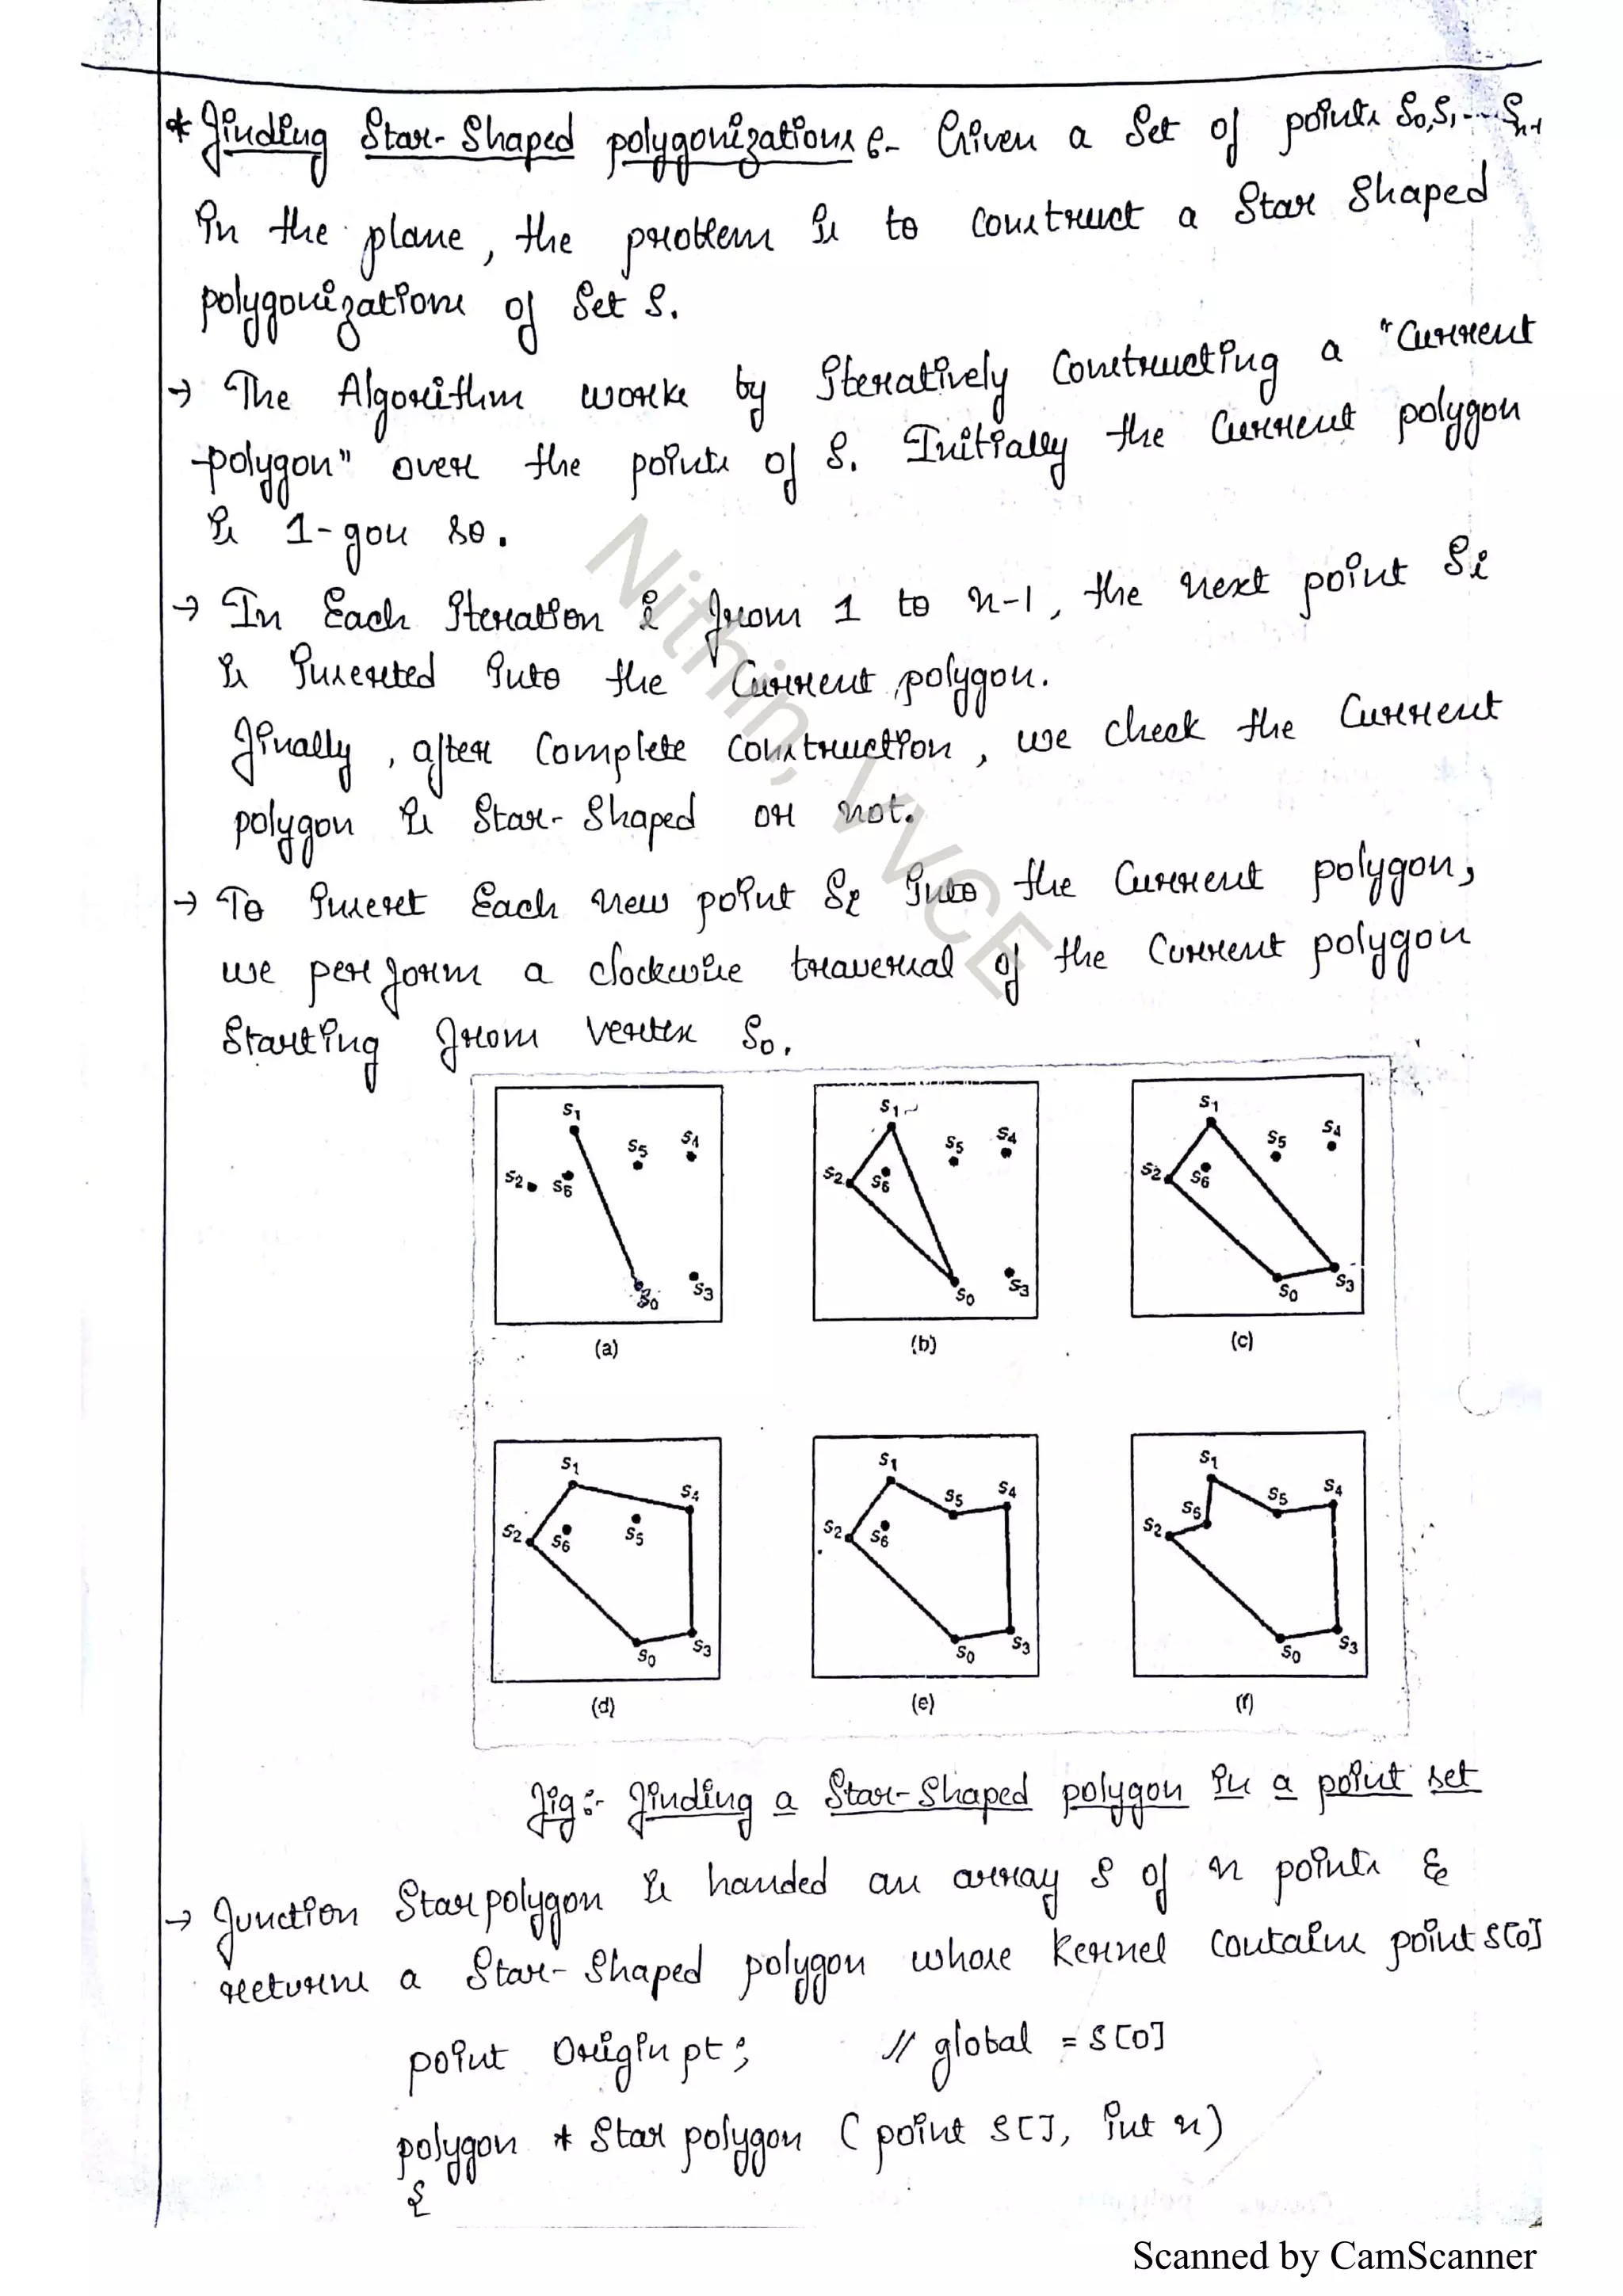 * Finding Star-Shaped polygonizations :- Given a Set of points S0,S1,...Sn-1
in the plane, the problem is to construct a Star Shaped
polygonizations of Set S.
→ The Algorithm works by Iteratively Constructing a "Current
polygon" over the points of S. Initially the Current polygon
is 1-gon s0.
→ In Each Iteration i from 1 to n-1, the next point Si
is Inserted into the Current polygon.
Finally, after Complete construction, we check the Current
polygon is Star-Shaped or not.
→ To Insert Each new point Si into the Current polygon,
we perform a clockwise traversal of the Current polygon
Starting from vertex S0.
S1 S5 S4 S2 S6 S0 S3
(a)
S1 S5 S4 S2 S6 S0 S3
(b)
S1 S5 S4 S2 S6 S0 S3
(c)
S1 S4 S2 S6 S5 S0 S3
(d)
S1 S5 S4 S2 S6 S0 S3
(e)
S1 S5 S4 S6 S2 S0 S3
(f)
Fig:- Finding a Star-Shaped polygon in a point set
→ Function Starpolygon is handed an array S of n points &
returns a Star-Shaped polygon whose Kernel contains point S[0]
point Originpt; // global = S[0]
polygon * Star polygon (point S[], int n)
{
Nithin, VVCE
Scanned by CamScanner